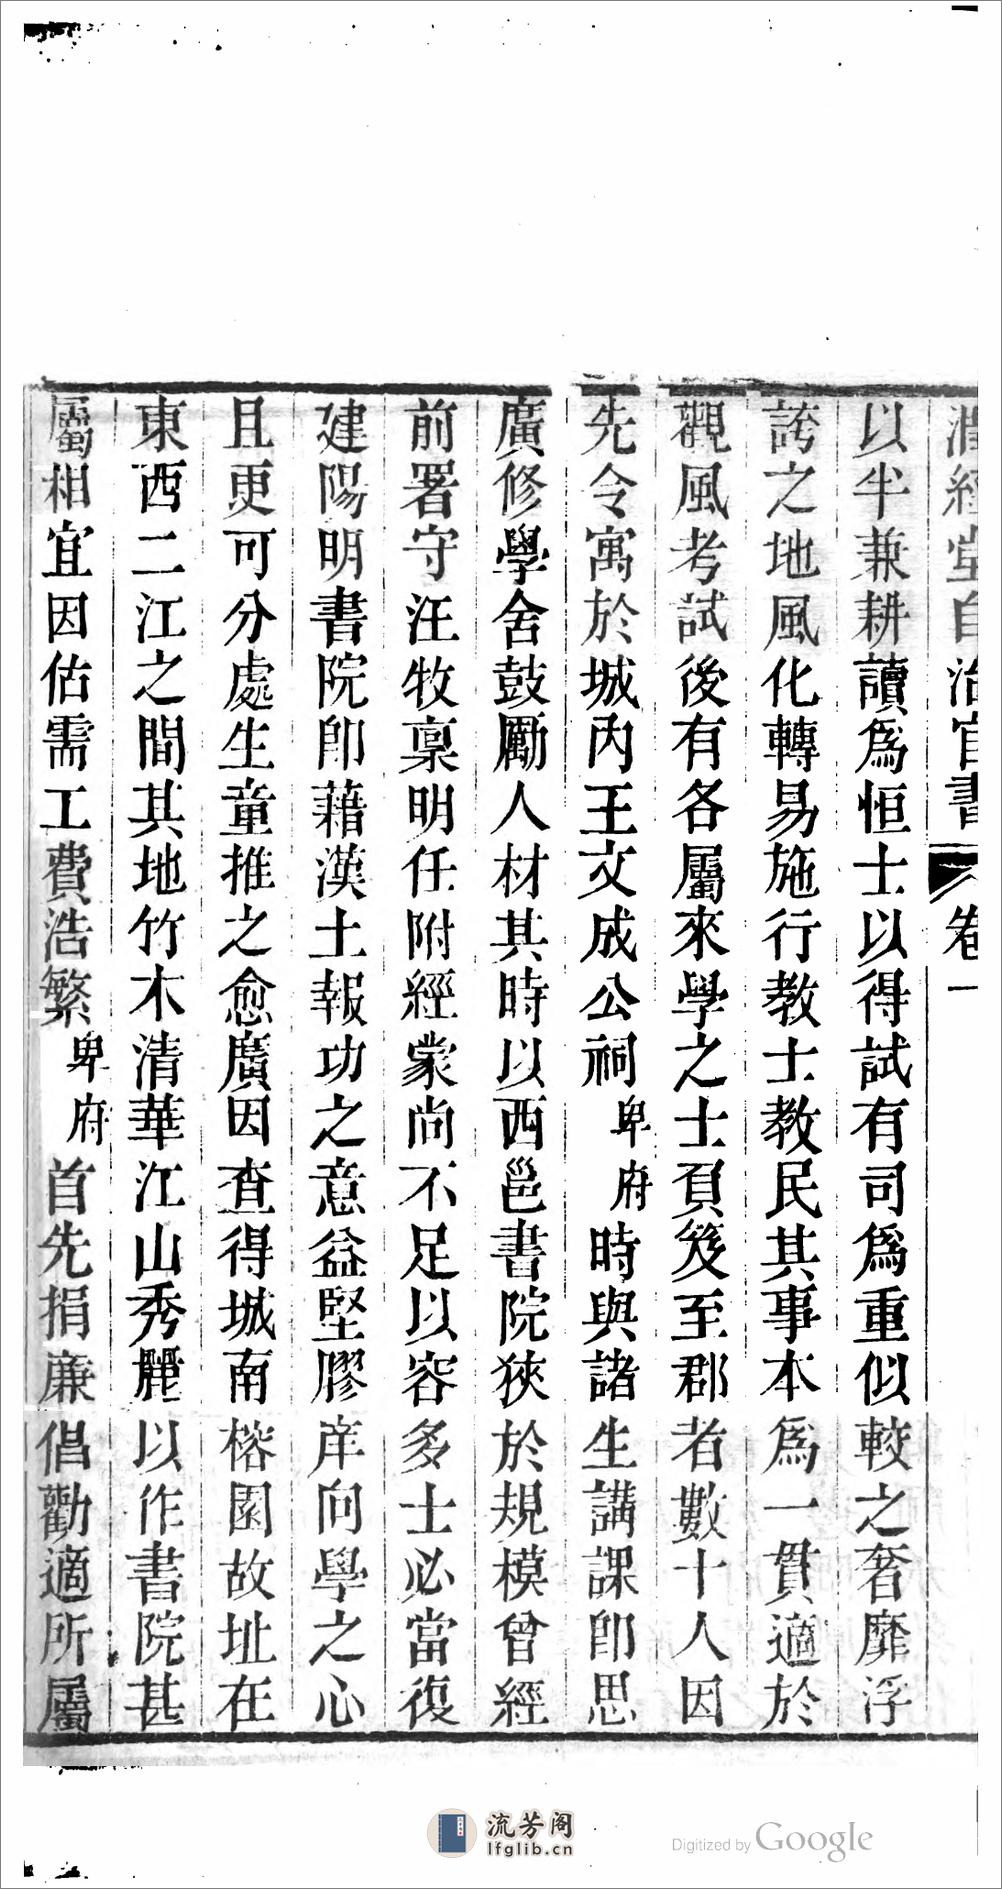 潤經堂自治官書 卷一
以半兼耕讀爲恒士以得試有司爲重似較之奢靡浮
誇之地風化轉易施行教士教民其事本爲一貫適於
觀風考試後有各屬來學之士負笈至郡者數十人因
先令寓於城內王文成公祠卑府時與諸生講課卽思
廣修學舍鼓勵人材其時以西邕書院狹於規模曾經
前署守汪牧稟明任附經蒙尚不足以容多士必當復
建陽明書院卽藉漢土報功之意益堅膠庠向學之心
且更可分處生童推之愈廣因查得城南榕園故址在
東西二江之間其地竹木清華江山秀麗以作書院甚
屬相宜因估需工費浩繁卑府首先捐廉倡勸適所屬
流芳阁
lfglib.cn
Digitized by Google